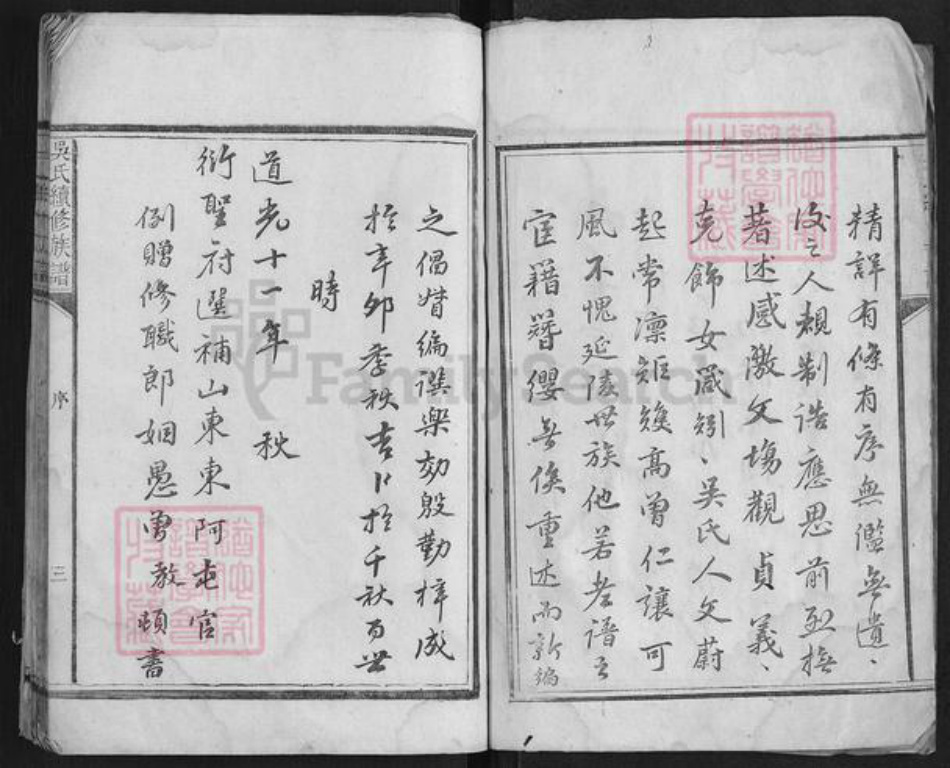 精詳有條有序無濫無遺、
後之人覩制誥應思前烈撫
著述感激文場觀貞義、
克飾女箴矧、吳氏人文蔚
起常凛矩矱高曾仁讓可
風不愧延陵世族他若老譜之
宦籍簪纓無俟重述而新編
之倡婧編譔樂効殷勤梓成
於辛卯季秋吉卜於千秋百世
時
道光十一年 秋
衍聖府選補山東東阿屯官
例贈修職郎姻愚曾教頓書
吳氏續修族譜
序
三
FamilySearch